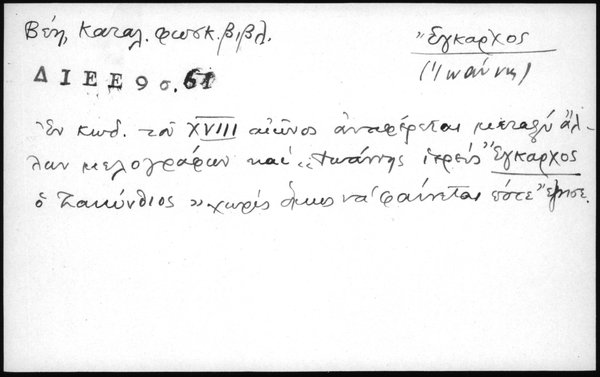 Βέη, Καταλ. φωσκ. βιβλ.
Ἔγκαρχος
(Ἰωάννης)
ΔΙΕΕ 9 σ. 61
Ἐν κωδ. τοῦ XVIII αἰῶνος ἀναφέρεται μεταξὺ ἄλ-
λων μελογράφων καὶ "Ἰωάννης ἱερεὺς Ἔγκαρχος
ὁ Ζακύνθιος" χωρὶς ὅμως νὰ φαίνεται πότε ἔζησε.